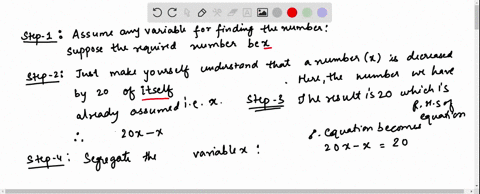 Step-1: Assume any variable for finding the number:
Suppose the required number be x
Step-2: Just make yourself understand that a number (x) is decreased
by 20 of itself. Here, the number we have
already assumed i.e. x. Step-3 The result is 20 which is
R.H.S of
equation
∴ 20x-x
∴ Equation becomes
20x-x = 20
Step-4: Segregate the variable x: